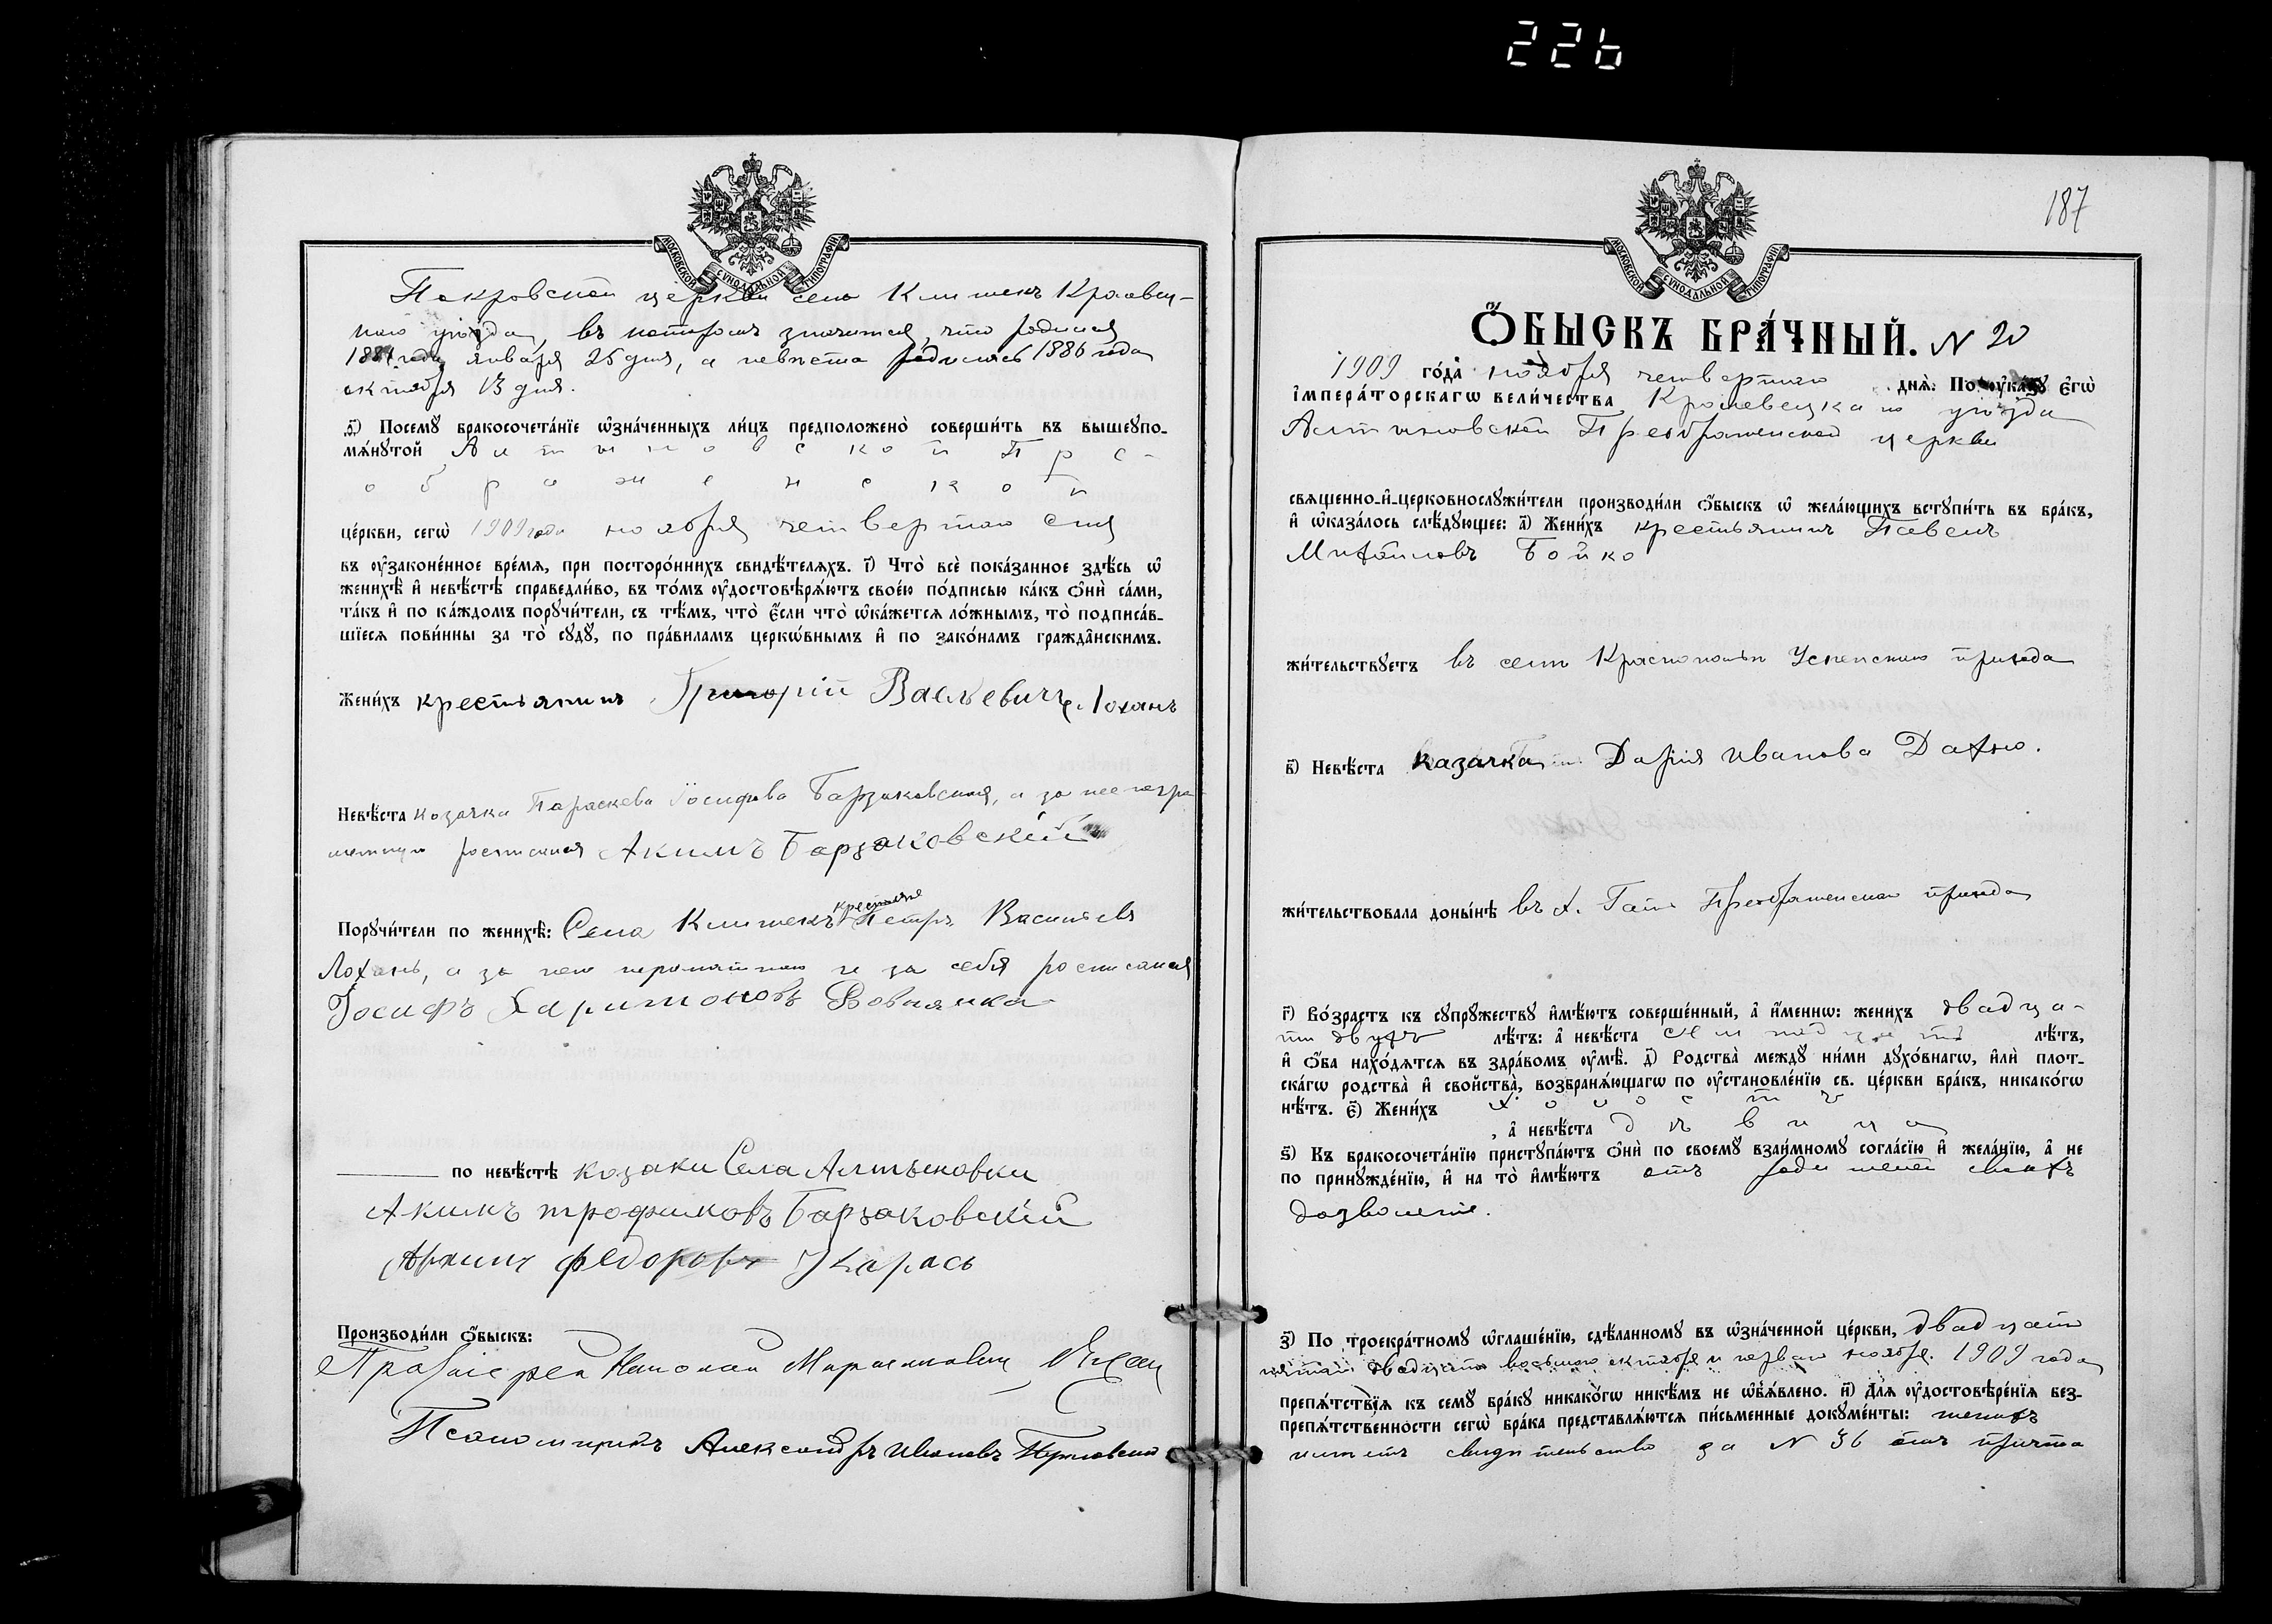 226
МОСКОВСКОЙ СУНОДАЛЬНОЙ ТИПОГРАФІИ
Покровской церкви села Клишекъ Кролевец-
каго уѣзда, въ которомъ значится, что родился
января 25 дня, а невѣста родилась 1886 года
октября 13 дня.
д҃і) Посемꙋ бракосочета́нїе ѡ҆зна́ченныхъ ли́цъ предположено̀ соверши́ть въ вышеꙋпо-
мѧ́нꙋтой Алтыновской Пре-
ображенской
це́ркви, сегѡ̀ 1909 года ноября четвертаго дня
въ ᲂу҆законе́нное вре́мѧ, при посторо́ннихъ свидѣ́телѧхъ. і҃) Что̀ всѐ пока́занное здѣ́сь ѡ҆
женихѣ̀ и҆ невѣ́стѣ справедли́во, въ то́мъ ᲂу҆достовѣрѧ́ютъ свое́ю по́дписью ка́къ ѻ҆нѝ са́ми,
та́къ и҆ по ка́ждомъ порꙋчи́тели, съ тѣ́мъ, что̀ є҆́сли что̀ ѡ҆ка́жетсѧ ло́жнымъ, то̀ подписа́в-
шїесѧ пови́нны за то̀ сꙋдꙋ̀, по пра́виламъ церко́внымъ и҆ по зако́намъ гражда́нскимъ.
Жени́хъ крестьянинъ Григорій Васильевичъ Лохань
Невѣ́ста козачка Параскева Іосифова Барзаковская, а за нее негра
мотную росписался Акимъ Барзаковскій
крестьяне
Порꙋчи́тели по женихѣ̀: Села Клишекъ Петръ Васильевъ
Лохань, а за него неграмотнаго и за себя росписался
Іосифъ Харитоновъ Вовнянка
по невѣ́стѣ козаки Села Алтыновки
Акимъ трофимовъ Барзаковскій
Архипъ федоровъ Карась
Производи́ли ѻ҆́быскъ:
Протоіерей Николай
Псаломщикъ Александръ Ивановъ
187
МОСКОВСКОЙ СУНОДАЛЬНОЙ ТИПОГРАФІИ
Ѻ҆́БЫСКЪ БРА́ЧНЫЙ. N 20
1909 го́да ноября четвертаго днѧ̀: По ᲂу҆ка́зꙋ є҆гѡ̀
і҆мпера́торскагѡ вели́чества Кролевецкаго уѣзда
Алтыновской Преображенской церкви
свѧще́нно-и҆-церковнослꙋжи́тели производи́ли ѻ҆́быскъ ѡ҆ жела́ющихъ встꙋпи́ть въ бра́къ,
и҆ ѡ҆каза́лось слѣ́дꙋющее: а҃) Жени́хъ крестьянинъ Павелъ
Михайловъ Бойко
жи́тельствꙋетъ въ селѣ Краснополѣ Успенскаго прихода
в҃) Невѣ́ста казачка Дарія Иванова Дахно.
жи́тельствовала доны́нѣ въ х. Преображенскаго прихода
г҃) Во́зрастъ къ сꙋпрꙋ́жествꙋ и҆мѣ́ютъ соверше́нный, а҆ и҆́меннѡ: жени́хъ двадца-
ти двухъ лѣ́тъ: а҆ невѣ́ста лѣ́тъ,
и҆ ѻ҆́ба нахо́дѧтсѧ въ здра́вомъ ᲂу҆мѣ̀. д҃) Родства̀ междꙋ̀ ни́ми дꙋхо́внагѡ, и҆лѝ плот-
ска́гѡ родства̀ и҆ свойства̀, возбранѧ́ющагѡ по ᲂу҆становле́нїю св. це́ркви бра́къ, никако́гѡ
нѣ́тъ. є҃) Жени́хъ холостъ
, а҆ невѣ́ста дѣвица
ѕ҃) Къ бракосочета́нїю пристꙋпа́ютъ ѻ҆нѝ по своемꙋ̀ взаи́мномꙋ согла́сїю и҆ жела́нїю, а҆ не
по принꙋжде́нїю, и҆ на то̀ и҆мѣ́ютъ отъ родителей своихъ
дозволеніе.
з҃) По троекра́тномꙋ ѡ҆глаше́нїю, сдѣ́ланномꙋ въ ѡ҆зна́ченной це́ркви, двадцать
двадцать восьмого октября и перваго ноября 1909 года
препѧ́тствїѧ къ семꙋ̀ бра́кꙋ никако́гѡ никѣ́мъ не ѡ҆б̾ѧ́влено. и҃) Длѧ̀ ᲂу҆достовѣре́нїѧ без-
препѧ́тственности сегѡ̀ бра́ка представлѧ́ютсѧ пи́сьменные докꙋме́нты: женихъ
имѣетъ свидѣтельство за N 36 отъ причта